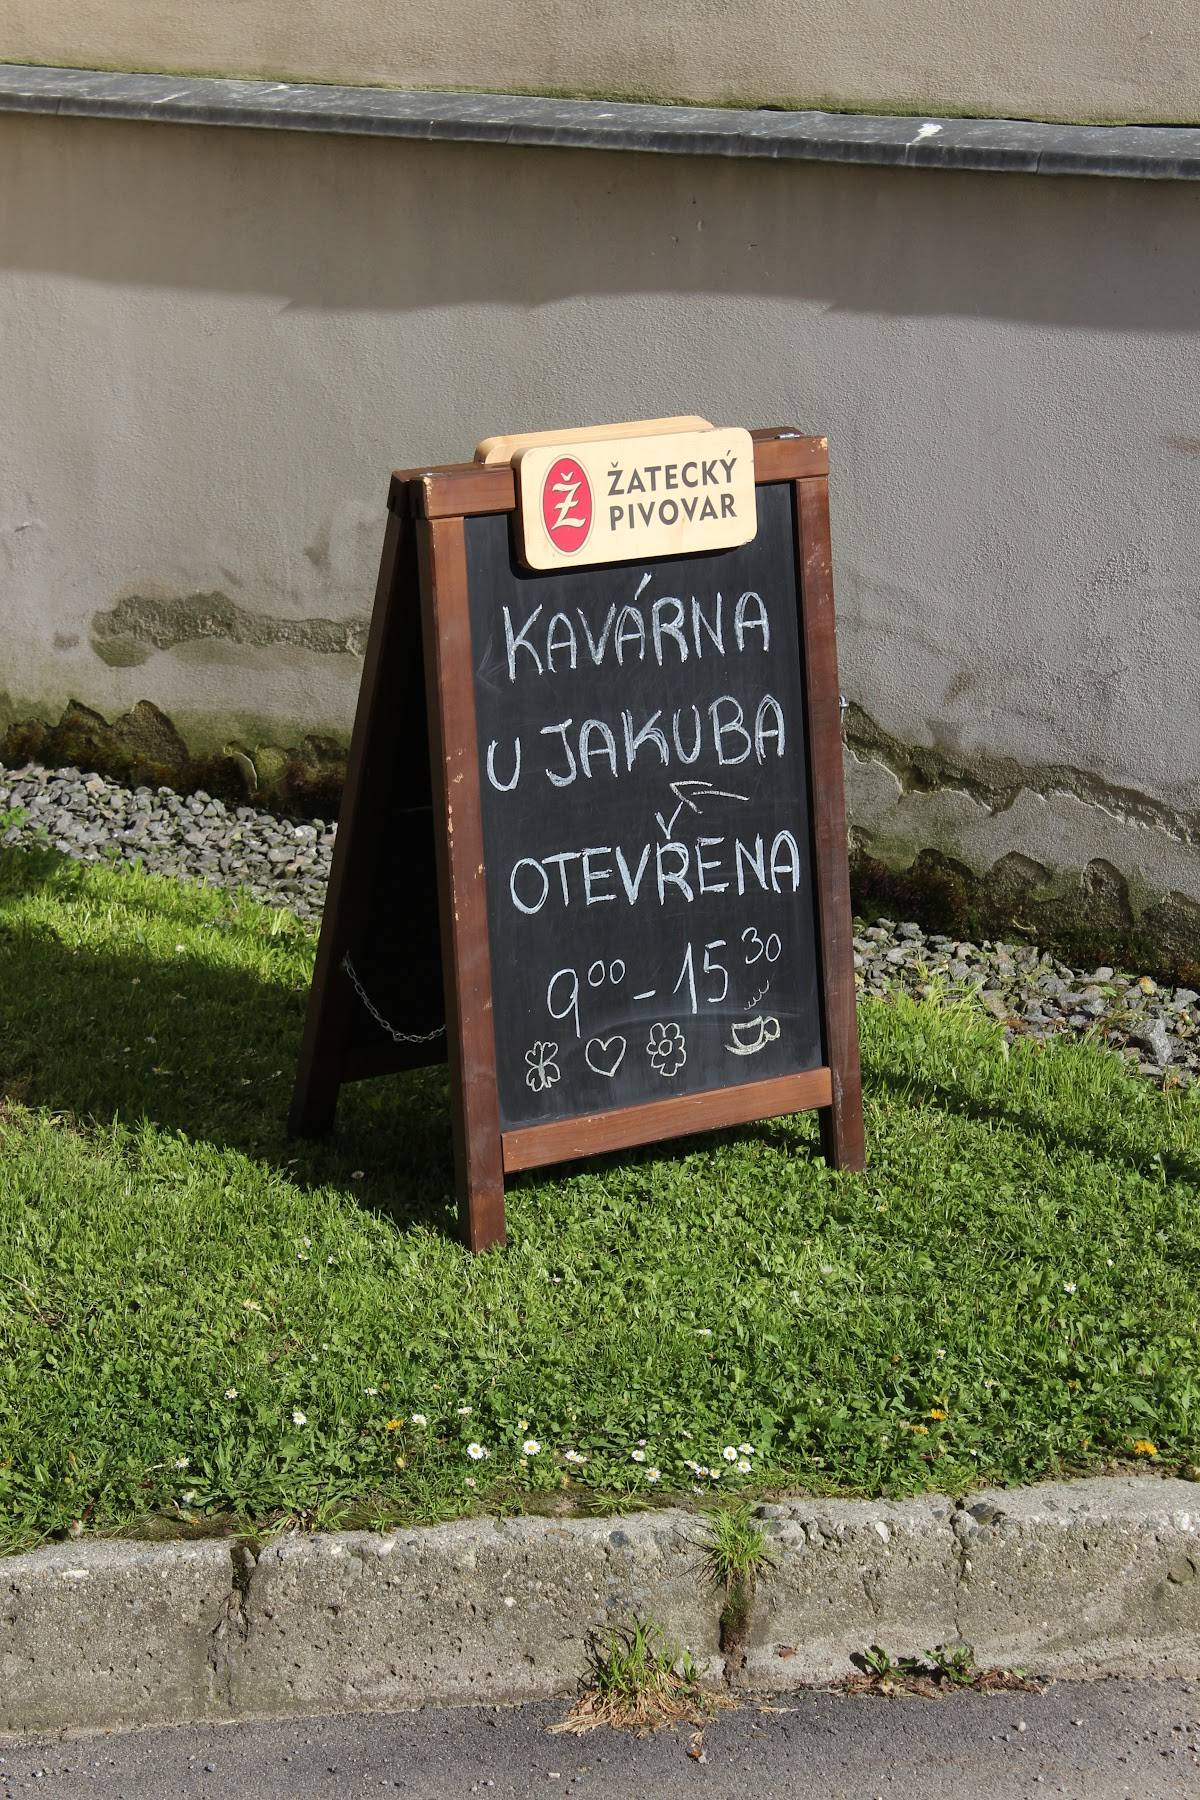 Ž ŽATECKÝ
PIVOVAR
KAVÁRNA
U JAKUBA
OTEVŘENA
9⁰⁰ - 15³⁰